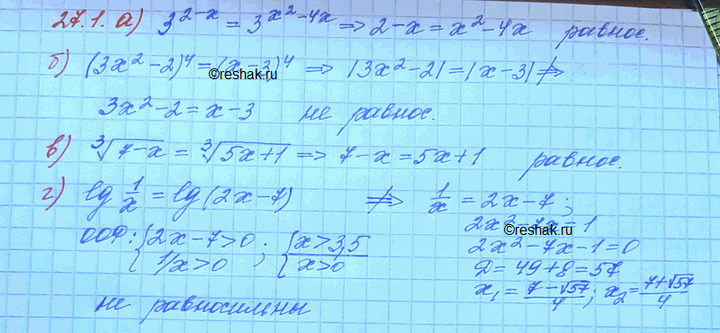 27.1. а) 3^{2-x} = 3^{x^2-4x} ⇒ 2-x = x^2-4x равнос.
б) (3x^2-2)^4 = (x-3)^4 ⇒ |3x^2-2| = |x-3| ⇏
©reshak.ru
3x^2-2 = x-3 не равнос.
в) ∛(7-x) = ∛(5x+1) ⇒ 7-x = 5x+1 равнос.
©reshak.ru
г) lg 1/x = lg(2x-7) ⇏ 1/x = 2x-7;
2x^2-7x=1
ООФ: {2x-7>0; 1/x>0; {x>3,5 x>0
©reshak.ru
2x^2-7x-1=0
D = 49+8 = 57
x_1 = (7-√57)/4; x_2 = (7+√57)/4
не равносильны